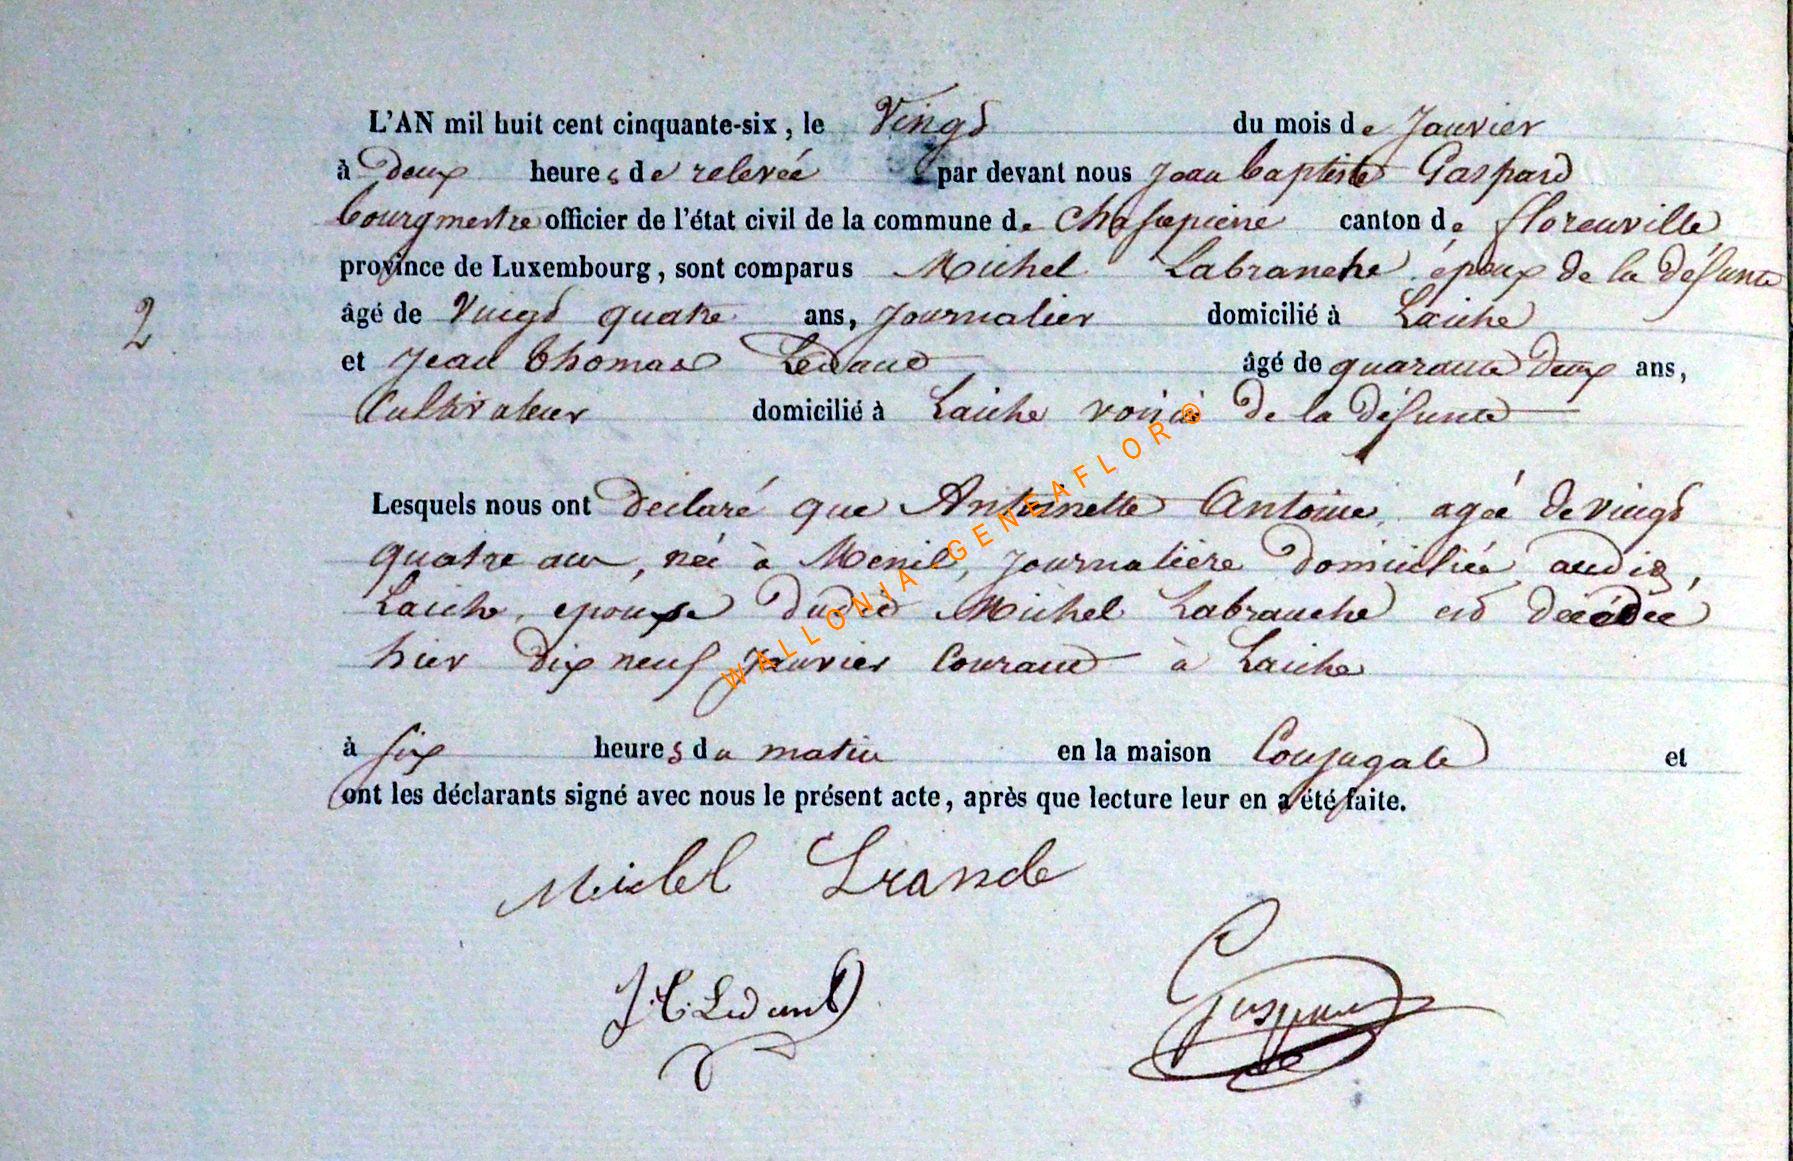 L'AN mil huit cent cinquante-six, le Vingt du mois de Janvier
à Deux heures de relevée par devant nous Jean baptiste Gaspard
bourgmestre officier de l'état civil de la commune de Chassepierre canton de florenville
province de Luxembourg, sont comparus Michel Labranche époux de la défunte
2
âgé de Vingt quatre ans, Journalier domicilié à Laiche
et Jean thomas Ledant âgé de quarante Deux ans,
Cultivateur domicilié à Laiche voisin De la Défunte
Lesquels nous ont Déclaré que Antoinette Antoine, agée De vingt
quatre ans, née à Menil, Journalière Domiciliée audit,
Laiche, epouse Dudit Michel Labranche est Décédée
hier Dix neuf Janvier Courant à Laiche
à six heures du matin en la maison Conjugale et
ont les déclarants signé avec nous le présent acte, après que lecture leur en a été faite.
Michel
J.T. Ledant
Gaspard
WALLONIA GENEAFLOR®